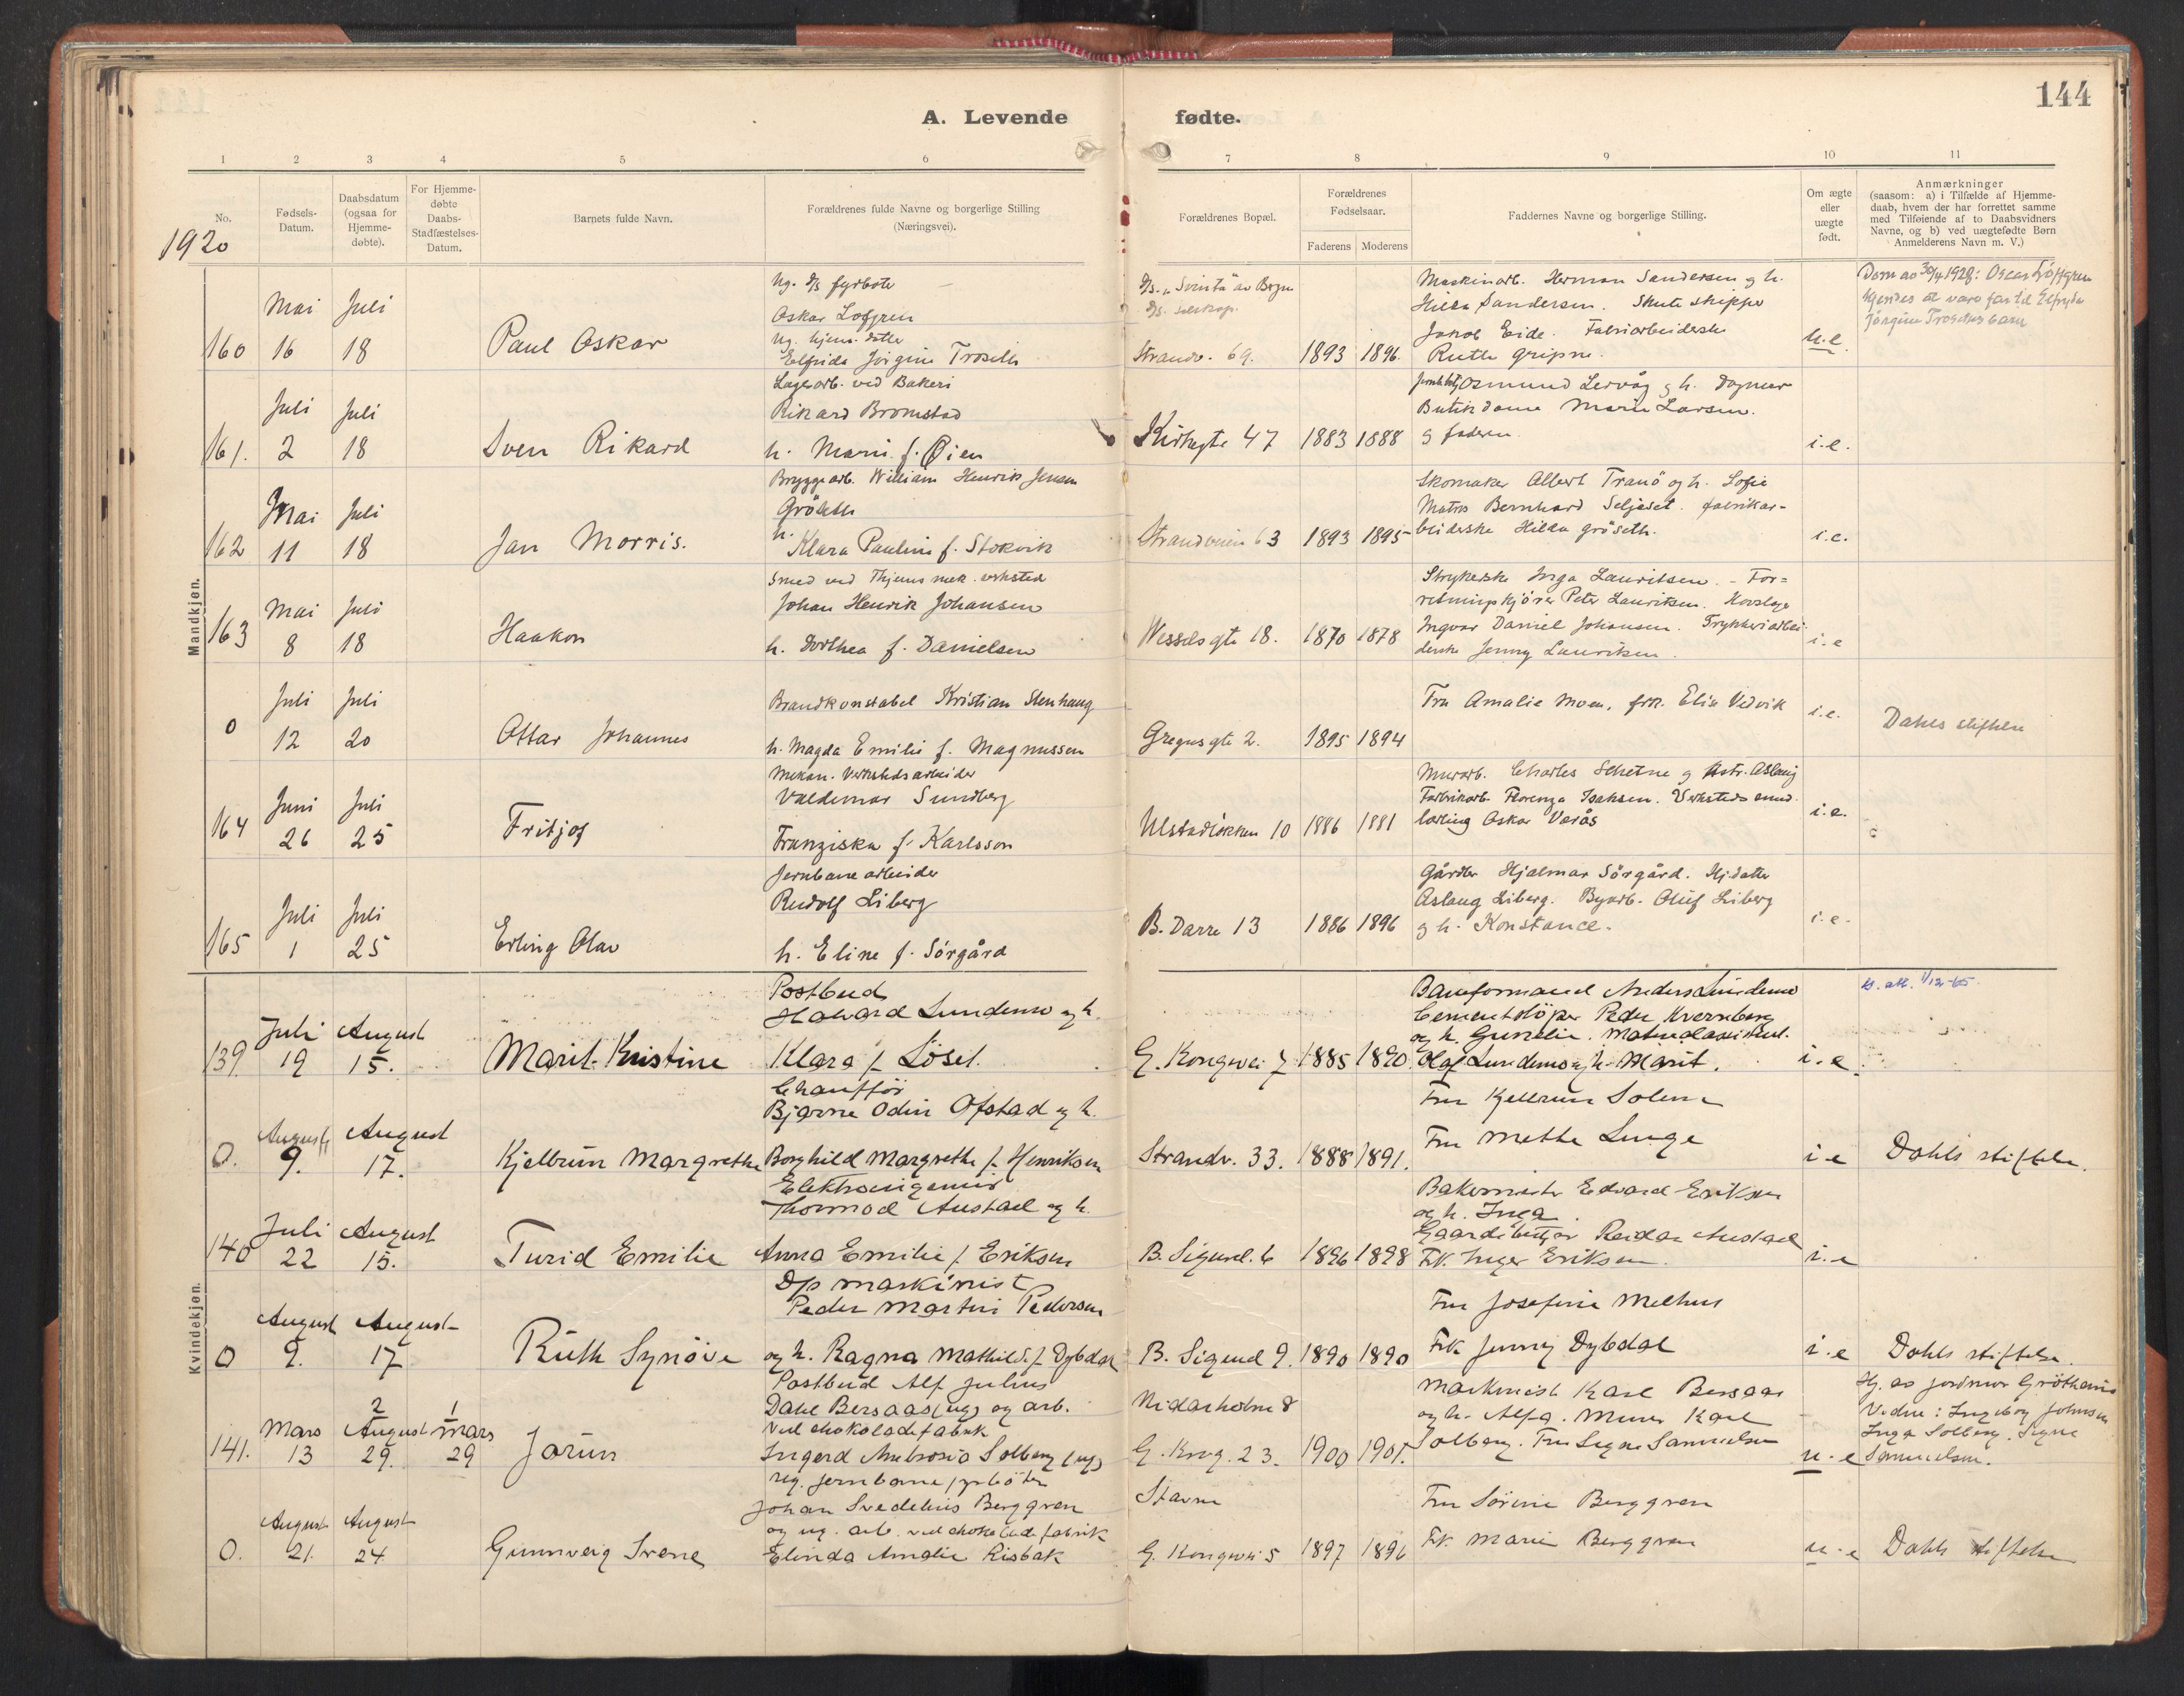 144
A. Levende fødte.
1 2 3 4 5 6 7 8 9 10 11
No.
Fødsels-
Datum.
Daabsdatum
(ogsaa for
Hjemme-
døbte).
For Hjemme-
døbte
Daabs-
Stadfæstelses-
Datum.
Barnets fulde Navn.
Forældrenes fulde Navne og borgerlige Stilling
(Næringsvei).
Forældrenes Bopæl.
Forældrenes
Fødselsaar.
Faderens Moderens
Faddernes Navne og borgerlige Stilling.
Om ægte
eller
uægte
født.
Anmærkninger
(saasom: a) i Tilfælde af Hjemme-
daab, hvem der har forrettet samme
med Tilføiende af to Daabsvidners
Navne, og b) ved uægtefødte Børn
Anmelderens Navn m. V.)
1920
Mandkjøn.
160
Mai
16
Juli
18
Paul Oskar
Ug. D/s fyrbøter
Oskar Lofgren
Ug. hjem. datter
Elfrida Jørgine Troseth
Strandv. 69.
1893 1896
Maskinarb. Herman Sandersen og h.
Hilda Sandersen. Skuteskipper
Jakob Eide. Fabrikarbeiderske
Ruth Gripne.
u.e.
Dom av 30/4 1928: Oscar Löffgren
kjendes at være far til Elfrida
Jørgine Troseths barn
161.
Juli
2
Juli
18
Sven Rikard
Lagerarb. ved Bakeri
Rikard Bromstad
h. Marie f. Øien
Kirkegte 47
1883 1888
Osmund Lervåg og h. Dagmar
Butikdame Marie Larsen.
og faderen
i.e.
162
Mai
11
Juli
18
Jan Morris.
Bryggearb. William Henrik Jensen
Gröseth
h.
Klara Pauline f. Stokvik
Strandveien 63
1893 1895
Skomaker Albert Tranö og h. Sofie
Matros Bernhard Seljeset. Fabrikar-
beiderske Hilda Gröseth.
i.e.
163
Mai
8
Juli
18
Haakon
Smed ved Thjems mek. verksted
Johan Henrik Johansen
h. Dorthea f. Danielsen
Wessels gte 18.
1870 1878
Strykerske Inga Lauritsen. - For=
retningskjörer Peter Lauritsen.
Ingvar Daniel Johansen. Trykkeriarbei-
derske Jenny Lauritsen.
i.e
0
Juli
12
Juli
20
Ottar Johannes
Brandkonstabel Kristian Stenhaug
h. Magda Emilie f. Magnussen
Gregus gte 2.
1895 1894
Fru Amalie Moen, frk. Elise Vedvik
i.e.
Dahls stiftelse
164
Juni
26
Juli
25
Fritjof
Mekan. Verkstedsarbeider
Valdemar Sundberg
Franziska f. Karlsson
Ulstadløkken 10
1886 1881
Murarb. Charles Schetne og Astr. Aslaug
Fabrikarb. Florenza Isaksen. Verksteds smed
lærling Oskar Værås
i.e.
165
Juli
1
Juli
25
Erling Olav
Jernbanearbeider
Rudolf Liberg
h. Eline f. Sörgård
B. Darre 13
1886 1896
Gårdbr Hjalmar Sörgård. Hj.datter
Aslaug Liberg. Byarb. Oluf Liberg
og h. Konstance.
i.e.
Kvindekjøn.
139
Juli
19
August
15.
Marit Kristine
Postbud
Halvard Lundemo og h.
Klara f. Löset.
G. Kongevei 7
1885 1890.
Baneformand Anders Lundemo
Cementstöper Peder Kvernberg
og h. Gunelie. Materialassistent.
Olaf Lundemo og h. Marit.
i.e
kl. att. 1/12-65.
0.
August
9.
August
17.
Kjellrun Margrethe
Chauffør
Bjarne Odin Ofstad og h.
Borghild Margrethe f. Henriksen
Strandv. 33.
1888 1891.
Fru Kjellrun Solem
Fru Mette Lunge
i.e
Dahls stiftelse.
140
Juli
22
August
15.
Turid Emilie
Elektroingeniør
Thormod Austad og h.
Anna Emilie f. Eriksen
B. Sigurd. 6
1896 1898
Bakermester Edvard Eriksen
og h. Inga.
Gaardsbestyrer Reidar Austad
Frk. Inger Eriksen.
i.e
0
August
9.
August
17
Ruth Synöve
D/s maskinist
Peder Martin Pedersen
og h. Ragna Mathilde f. Dybdal
B. Sigurd 9.
1890 1890
Fru Josefine Melhus
Frk Jenny Dybdal
i.e
Dahls stiftelse.
141.
Mars
13
2
August
29.
1
mars
29
Jorun
Postbud Alf Julius
Dahl Bersaas (ug) og arb.
ved chokoladefabrik
Ingerd Ambrosia Solberg (ug)
Nidarholm 8
G. Kong. 23.
1900 1901.
Maskinist Karl Bersaas
og h. Alfa. Murer Karl
Solberg. Fru Signe Samuelsen
u.e
Hj. av jordmor Gröthem
Vidne: Ingeborg Johnsen
Inga Solberg. Signe
Samuelsen.
0.
August
21.
August
24
Gunnveig Irene
ug. jernbanefyrböter
Johan Svedelius Berggren
og ug. arb. ved chokoladefabrik
Elinda Amalie Risbak
Stavne
G. Kongevei 5
1897 1896
Fru Sörine Berggren
Frk. Marie Berggren
u.e
Dahls stiftelse